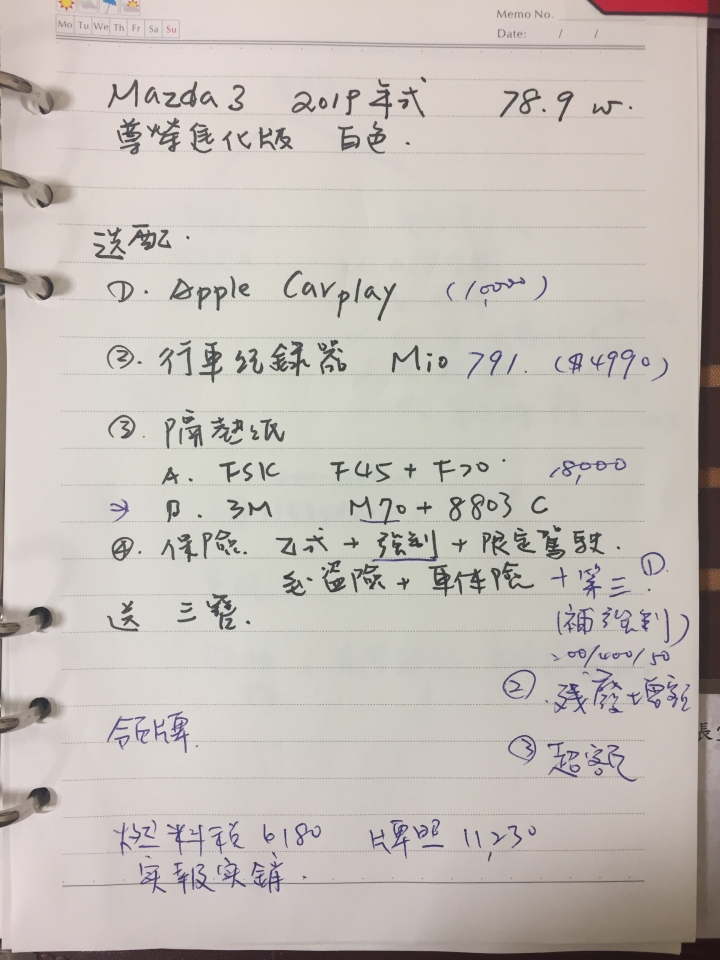 Memo No.
Mo Tu We Th Fr Sa Su
Date: / /
Mazda 3 2019年式 78.9 w.
尊榮進化版 白色.
送配.
①. Apple Carplay (10,000)
②. 行車紀錄器 Mio 791. ($4990)
③. 隔熱紙
A. FSK F45 + F20 18,000
→ B. 3M M70 + 8803 C
④. 保險. 乙式 + 強制 + 限定駕駛.
盜險 + 車体險 + 第三.①
送 三寶.
(補強制)
200/400/50
②. 殘廢增額
領牌.
③ 超額
長
燃料稅 6180 牌照 11,230
实報实銷.